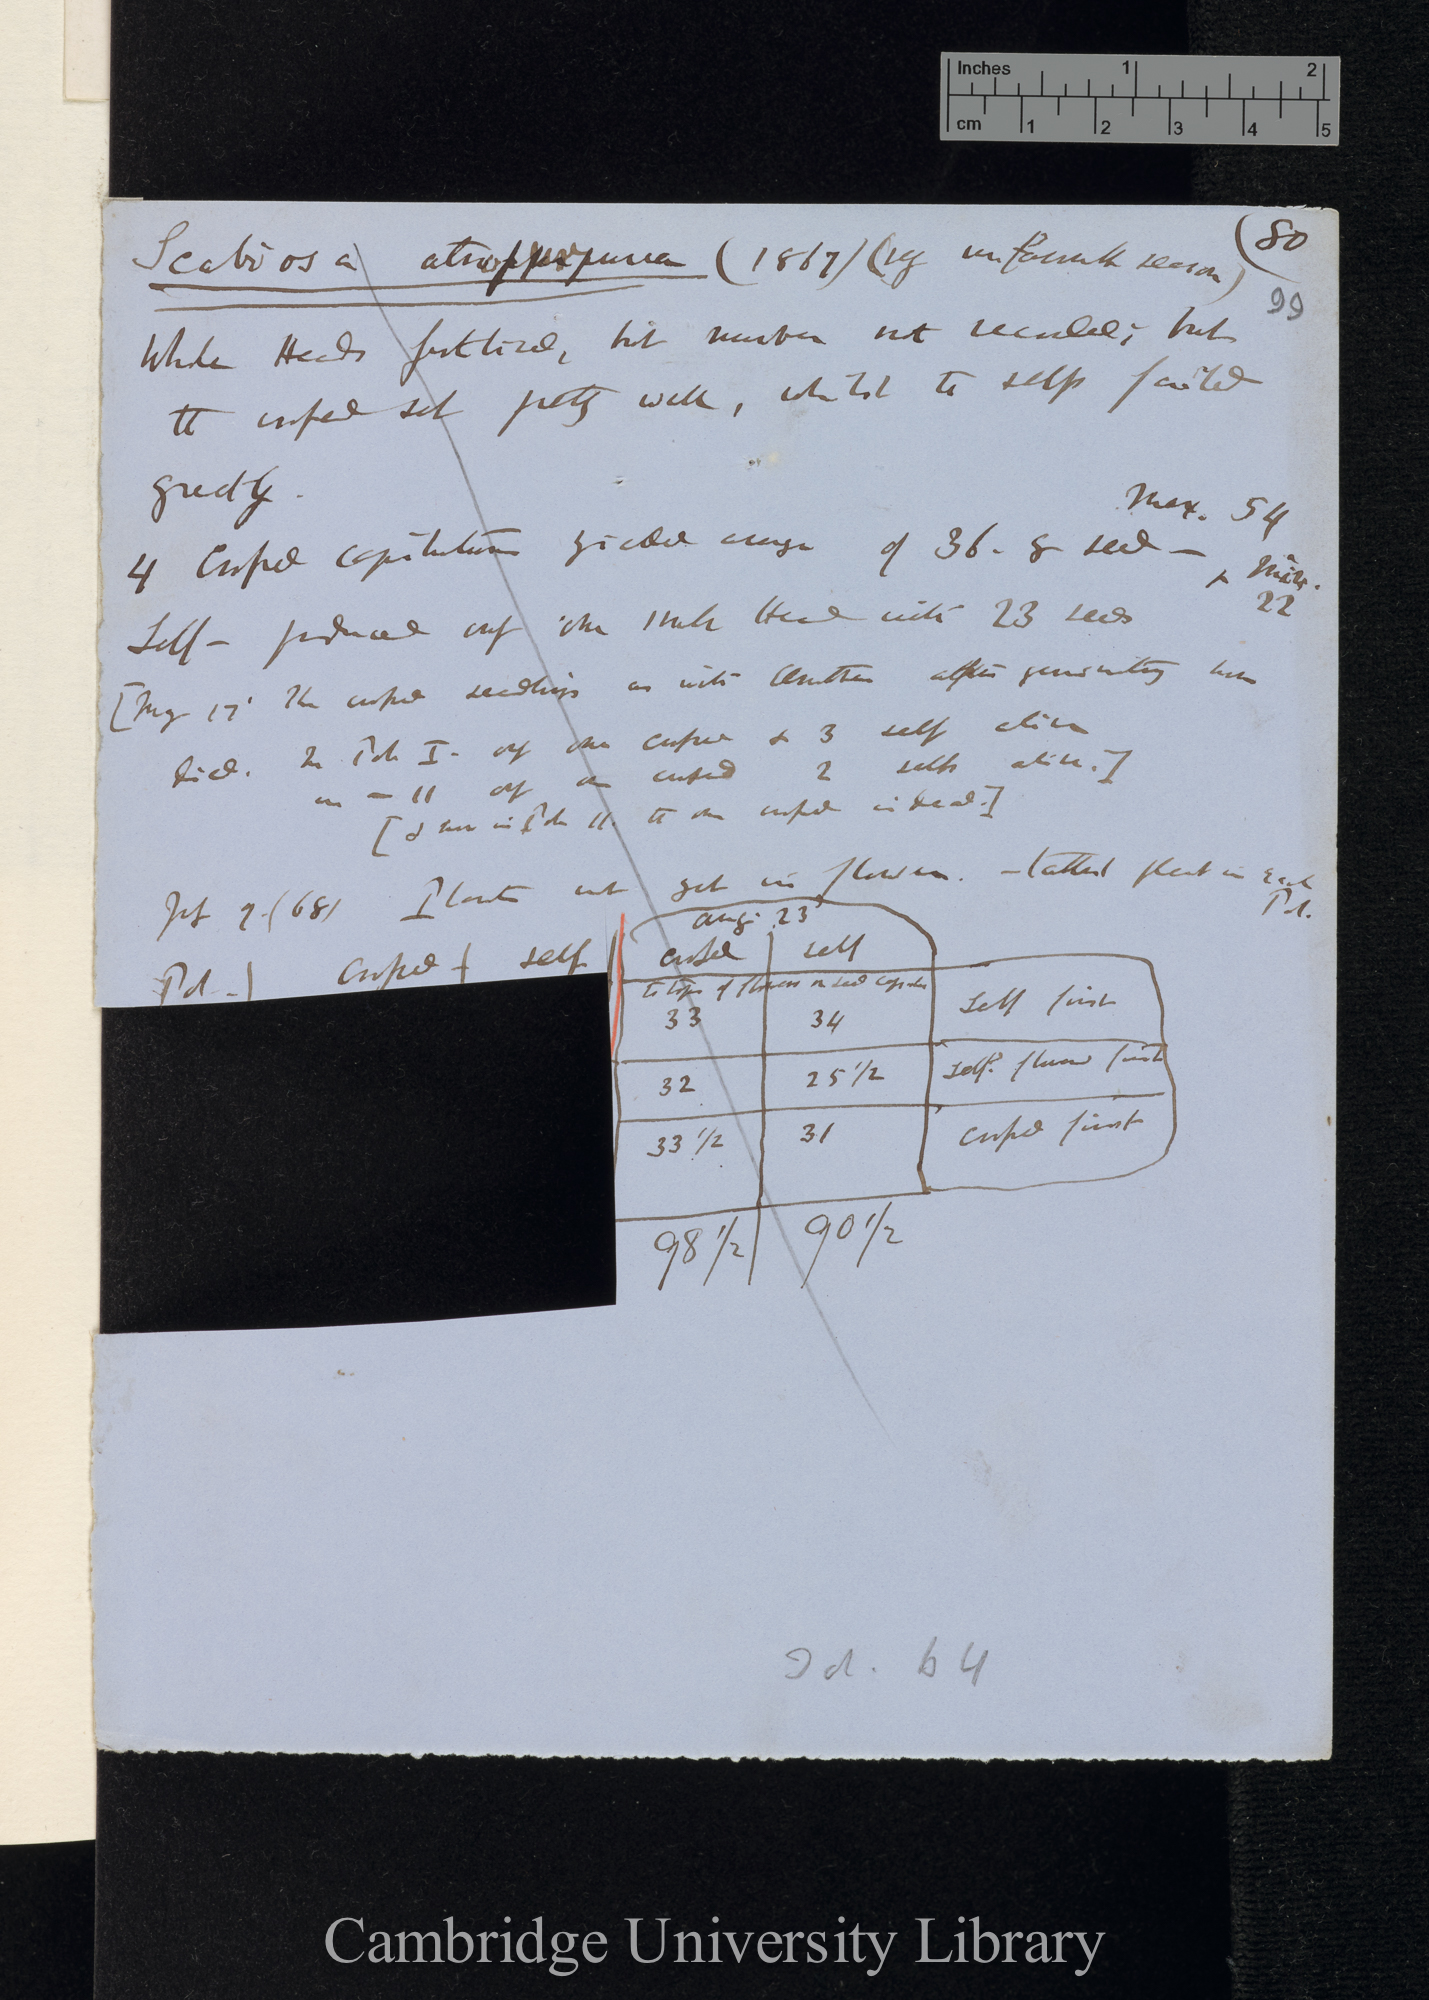 Inches 1 2
cm 1 2 3 4 5
(80
99
Scabiosa atro-purpurea (1867) (vy unfavourable season)
Whole Heads fertilised, but number not recorded; but
the crossed set pretty well, whilst the selfs failed
greatly.
Max. 54
4 Crossed capitulums yielded average of 36. g seed —
& Min.
22
Self — produced only one such Head with 23 seeds
[May 17' The crossed seedlings as with after germinating have
died. In Pot I. only one crossed & 3 self alive
in — II only one crossed 2 selfs alive.]
[& now in Pot II. the one crossed is dead.]
(68) Plants not yet in flower. — tallest plant in each
Pot.
Aug. 23
Pot | Crossed | self | crossed self
to tips of flowers or seed capsules
33 34 Self first
32 25 1/2 self. flower first
33 1/2 31 Crossed first
98 1/2 90 1/2
64
Cambridge University Library